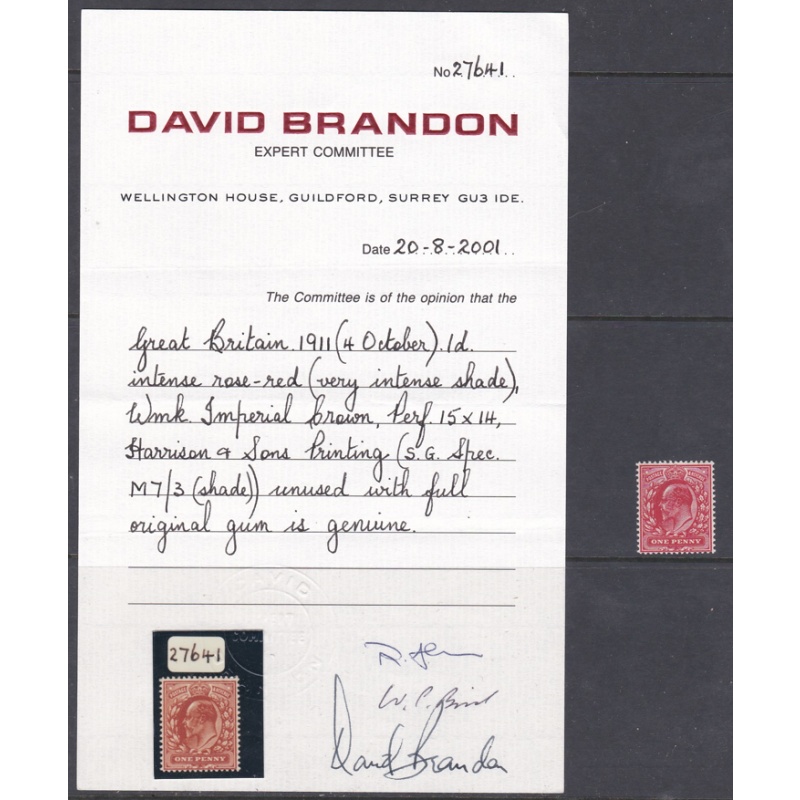 No 27641..
DAVID BRANDON
EXPERT COMMITTEE
WELLINGTON HOUSE, GUILDFORD, SURREY GU3 1DE.
Date 20-8-2001..
The Committee is of the opinion that the
Great Britain 1911 (4 October). 1d.
intense rose-red (very intense shade),
Wmk. Imperial Crown, Perf. 15 x 14,
Harrison & Sons Printing (S.G. Spec.
M7/3 (shade)) unused with full
original gum is genuine.
27641
ONE PENNY
David Brandon
ONE PENNY